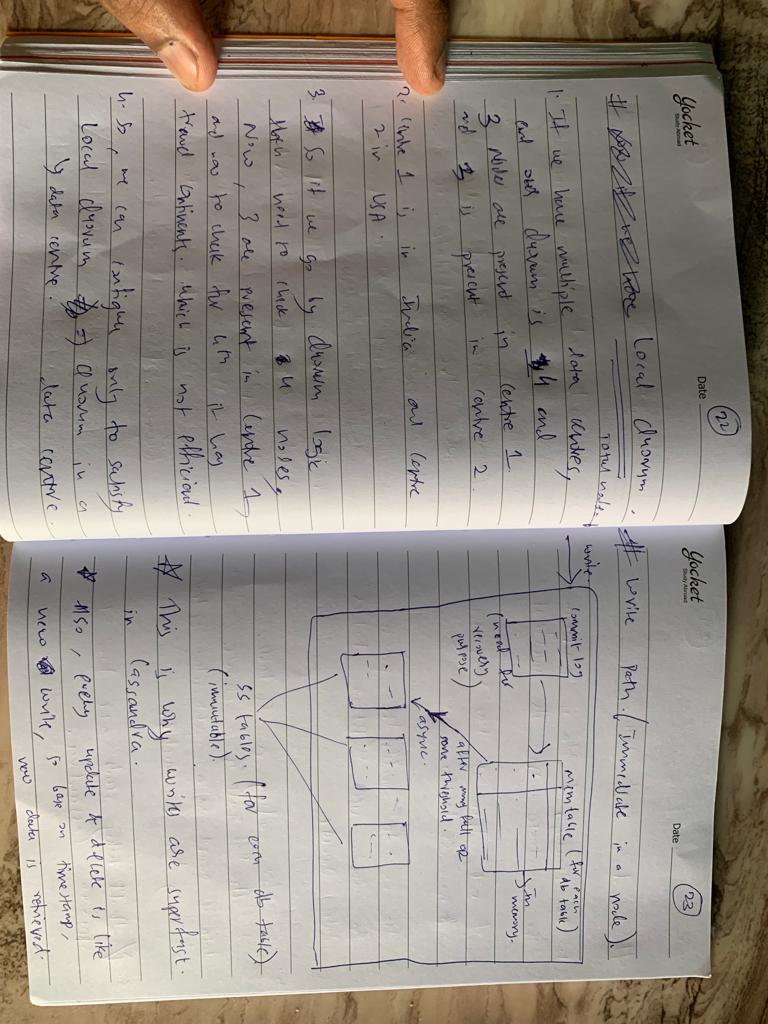 22
Yocket
Study Abroad
Date
# Local Quorum.
Total nodes
1. If we have multiple data centres,
and Quorum is 4 and
3 nodes are present in centre 1
and is present in centre 2.
2. Centre 1 is in India and centre
2 in USA.
3. So if we go by Quorum logic
need to check 4 nodes.
Now, 3 are present in Centre 1,
and now to check for 4th it has
travel continents. which is not efficient.
4. So, we can configure only to satisfy
Local Quorum => Quorum in a
data centre. data centre.
23
Yocket
Study Abroad
Date
# Write Path. (Immediate in a node).
write
commit log
memtable (for each
db table)
In
memory.
(need for
recovery
purpose)
after full or
some threshold.
async.
SS tables. (for each db table)
(immutable).
☆ This is why writes are superfast
in Cassandra.
☆ Also, every update & delete is like
a new write, so base on timestamp,
new data is retrieved.